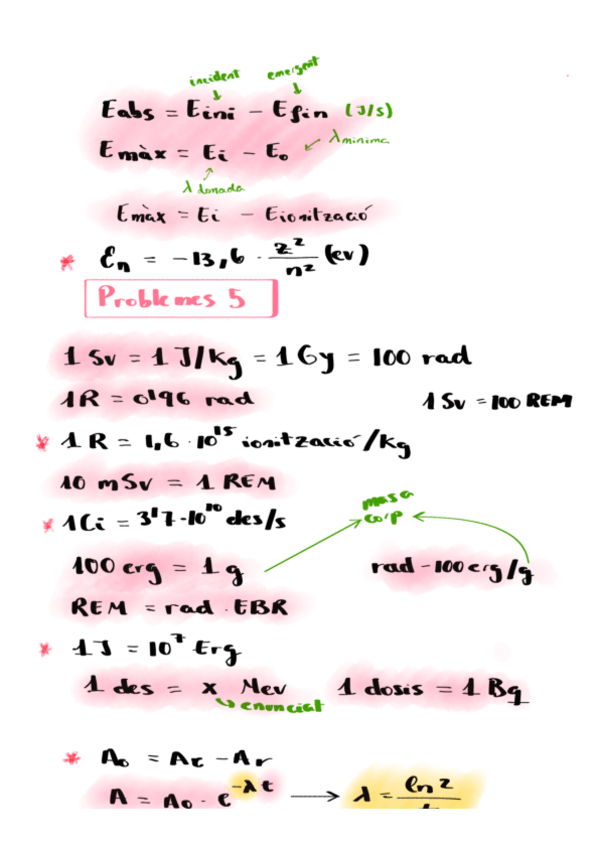 incident emergent
Eabs = Eini - Efin (J/s)
Emàx = Ei - E₀ λ minima
λ donada
Emàx = Ei - Eionització
* En = -13,6 · z²/n² (ev)
Problemes 5
1 Sv = 1 J/Kg = 1 Gy = 100 rad
1R = 0'96 rad 1 Sv = 100 REM
* 1 R = 1,6 · 10¹⁵ ionització/Kg
10 mSv = 1 REM
masa
* 1Ci = 3'7·10¹⁰ des/s corp
100 erg = 1 g rad - 100 erg/g
REM = rad · EBR
* 1J = 10⁷ Erg
1 des = x Mev 1 dosis = 1 Bq
enunciat
* A₀ = Ac - Ar
A = A₀ · e^-λt → λ = ln 2